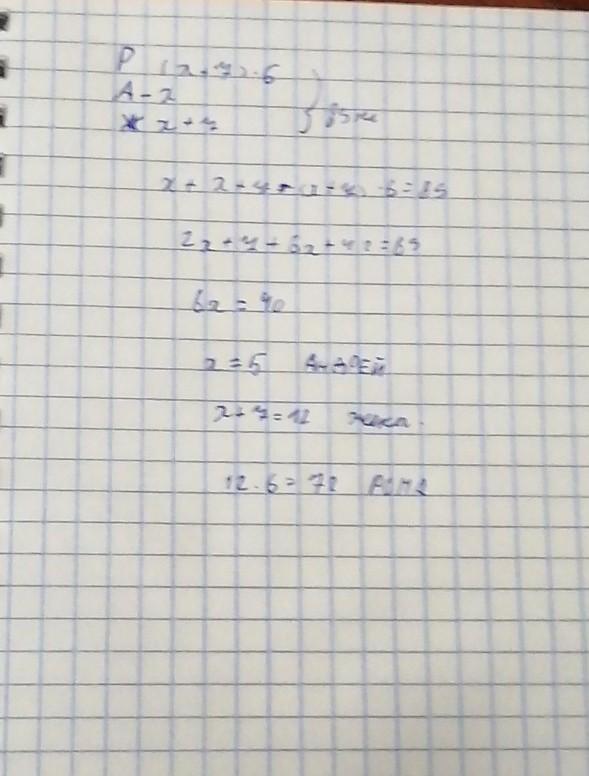 Р (x+7)·6
А - x
Ж x+7 } 89 км
x + x + 7 + (x+7)·6 = 89
2x + 7 + 6x + 42 = 89
8x = 40
x = 5 Андрей
x + 7 = 12 Жека.
12·6 = 72 Рома